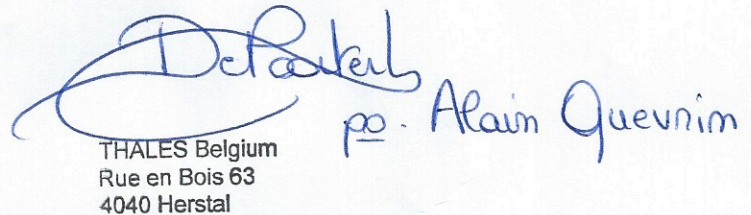 po. Alain Quevrin
THALES Belgium
Rue en Bois 63
4040 Herstal